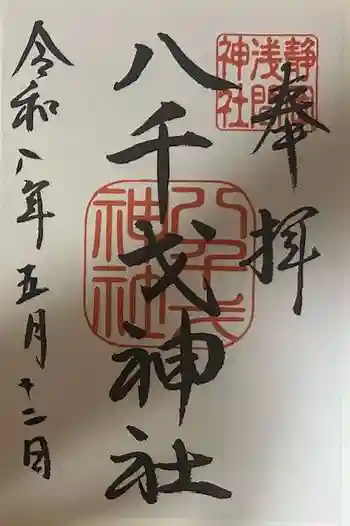 奉拝
静岡
浅間
神社
八千戈神社
八千戈
神社
令和八年五月十二日